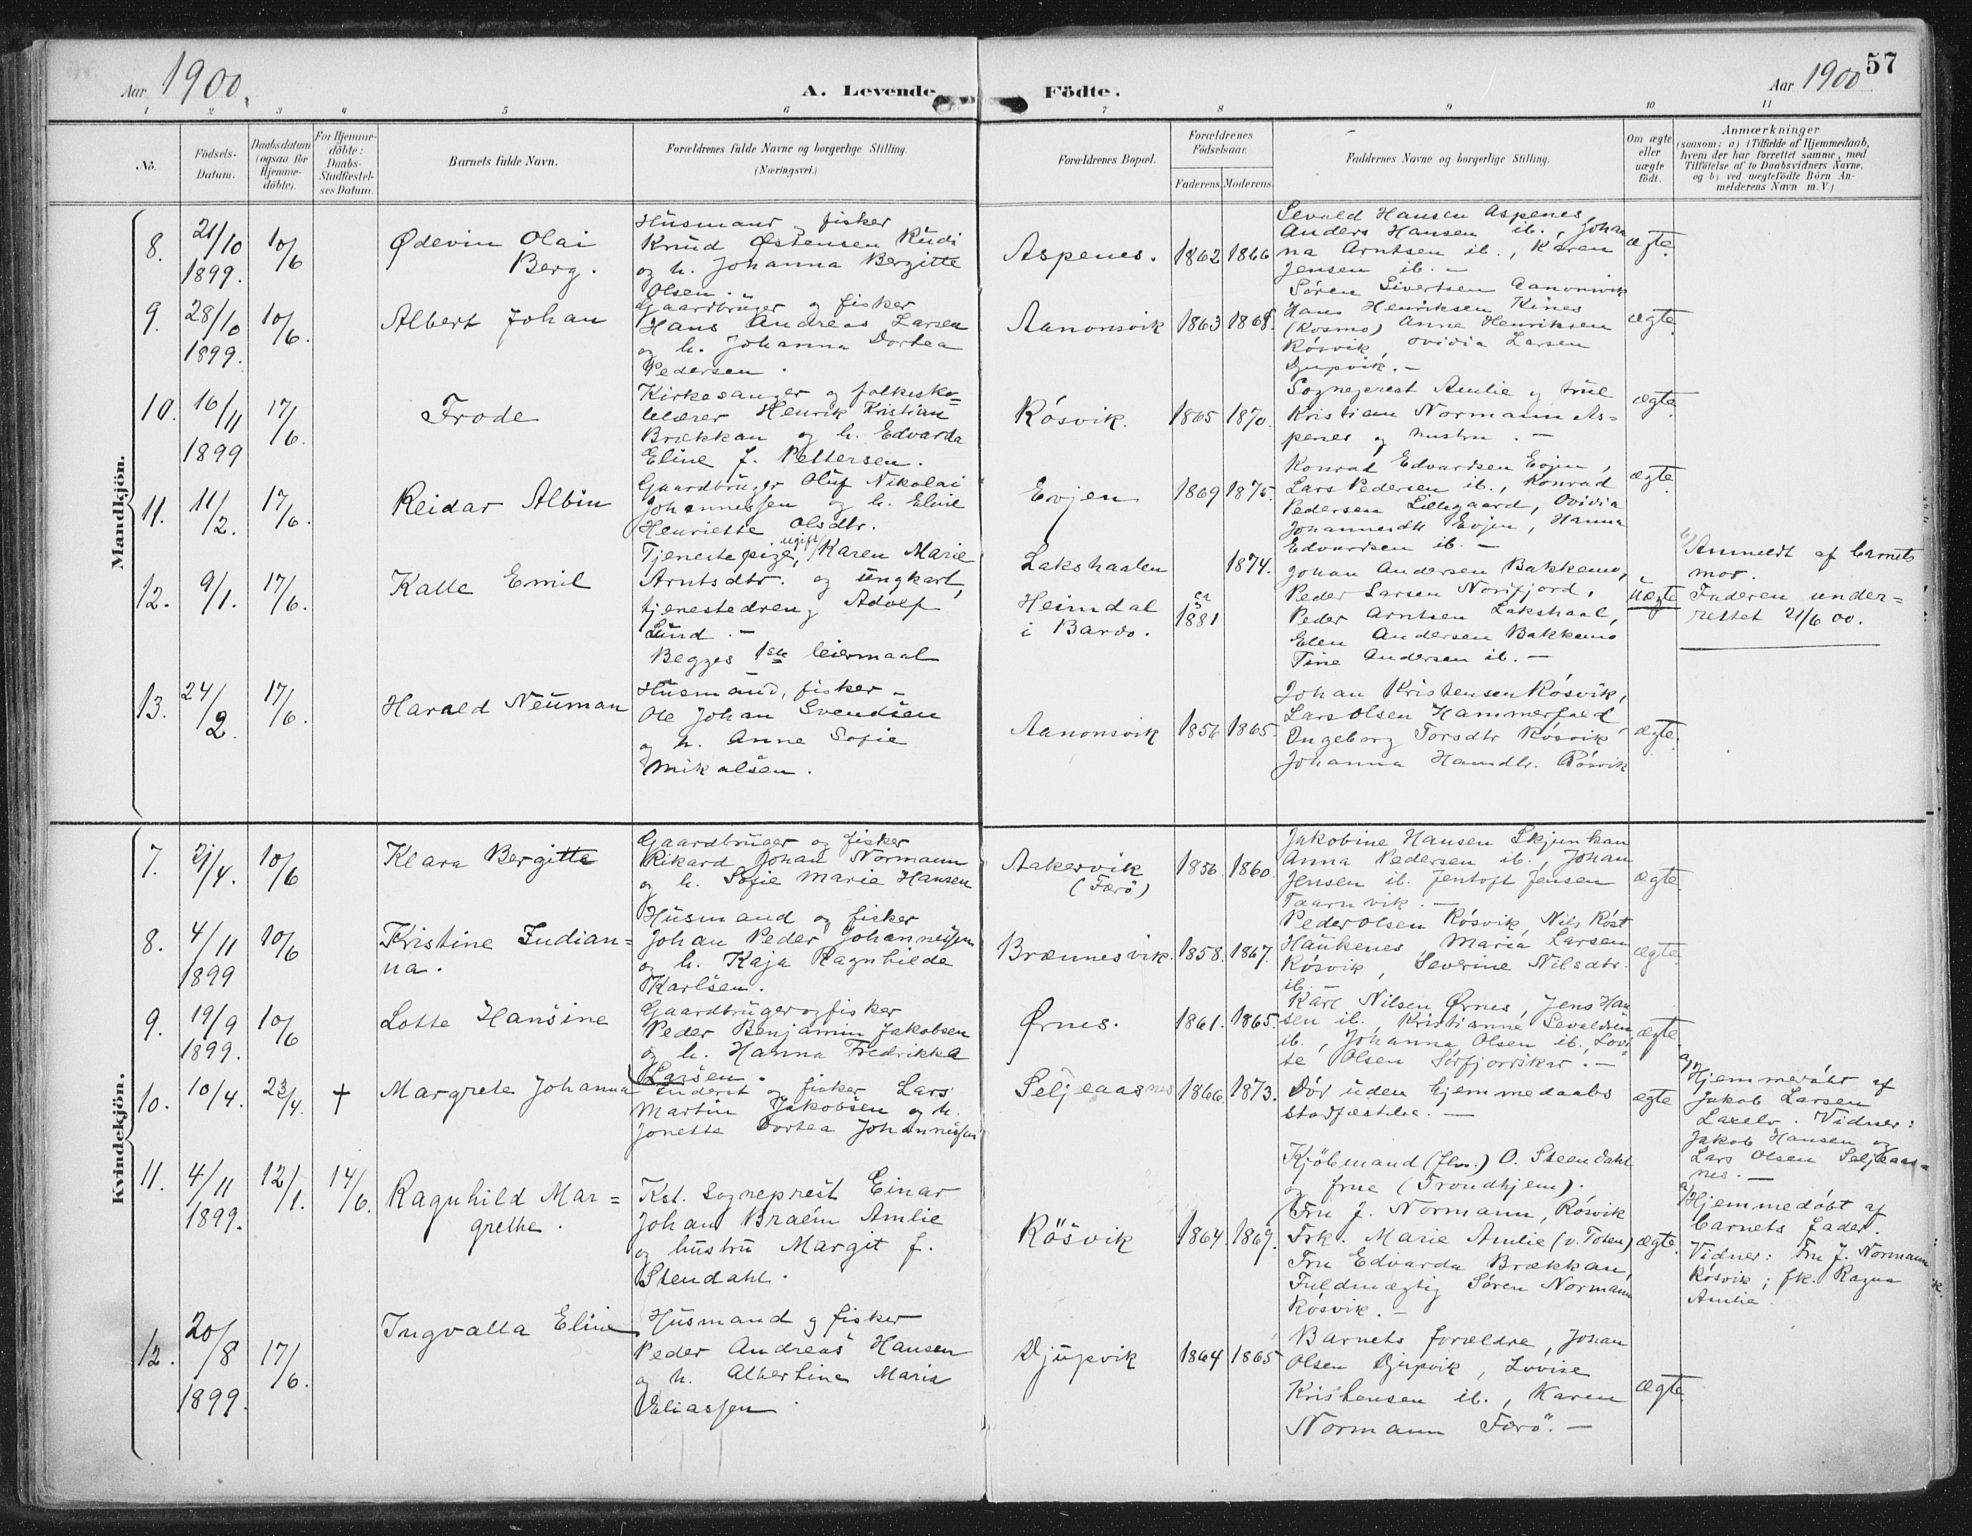 Aar 1900.
A. Levende Födte.
Aar 1900
57
1 2 3 4 5 6 7 8 9 10 11
No.
Födsels-Datum.
Daabsdatum (ogsaa for Hjemme-döbte).
For Hjemme-döbte: Daabs-Stadfæstel-ses Datum.
Barnets fulde Navn.
Forældrenes fulde Navne og borgerlige Stilling. (Næringsvei.)
Forældrenes Bopæl.
Forældrenes Födselsaar.
Faderens. Moderens.
Faddernes Navne og borgerlige Stilling.
Om ægte eller uægte födt.
Anmærkninger (saasom: a) i Tilfælde af Hjemmedaab, hvem der har forrettet samme, med Tilföielse af to Daabsvidners Navne, og b) ved uægtefödte Börn An-melderens Navn m. V.)
Mandkjön.
8. 21/10 1899. 10/6 Ødevin Olai Berg.
Husmand fisker
Knud Østensen Rudi
og h. Johanna Bergitte
Olsen.
Aspenes. 1862 1866
Sevald Hansen Aspenes,
Anders Hansen ib., Johan
na Arntsen ib., Karen
Jensen ib. –
ægte.
9. 28/10 1899. 10/6. Albert Johan
Gaardbruger og fisker
Hans Andreas Larsen
og h. Johanna Dortea
Pedersen.
Aanonsvik 1863 1868.
Søren Sivertsen Aanonsvik
Hans Henriksen Kines
(Kosmo) Anne Henriksen
Røsvik, Ovidia Larsen
Djupvik. –
ægte.
10. 16/11 1899 17/6. Frode
Kirkesanger og folkesko=
lelærer Henrik Kristian
Brækkan og h. Edvarda
Eline f. Pettersen.
Røsvik. 1865 1870.
Sogneprest Amlie og frue
Kristian Normann As-
penes og hustru. –
ægte.
11. 11/2. 17/6. Reidar Albin
Gaardbruger Oluf Nikolai
Johannessen og h. Eline
Henriette Olsdtr.
Evjen 1869 1875.
Konrad Edvardsen Evjen,
Lars Pedersen ib., Konrad
Pedersen Lillegaard, Ovidia
Johannesdtr Evjen, Hanna
Edvardsen ib. –
ægte.
12. 9/1. 17/6. Kalle Emil
Tjenestepige, ugift, Karen Marie
Arntsdtr. og ungkarl,
tjenestedreng Adolf
Lund. –
Begges 1ste leiermaal
Lakshaalen 1874.
Heimdal i Bardo. ca 1881
Johan Andersen Bakkemo,
Peder Larsen Norfjord,
Peder Arntsen Lakshaal,
Elen Andersen Bakkemo
Tine Andersen ib. –
uægte
b) Anmeldt af barnets
mor.
Faderen under=
rettet 21/6 00.
13. 24/2. 17/6. Harald Neuman
Husmand, fisker –
Ole Johan Svendsen
og h. Anne Sofie
Mikalsen.
Aanonsvik 1856 1865.
Johan Kristensen Røsvik,
Lars Olsen Hammerfald
Ingeborg Torsdtr Røsvik
Johanna Hansdtr. Røsvik
ægte.
Kvindekjön.
7. 21/4. 10/6 Klara Bergitte
Gaardbruger og fisker
Rikard Johan Normann
og h. Sofie Marie Hansen
Aakervik (Færø) 1856 1860.
Jakobine Hansen
Anna Pedersen ib., Johan
Jensen ib. Jentoft Jensen
Taarnvik. –
ægte.
8. 4/11 1899 10/6 Kristine Indian=
na.
Husmand og fisker
Johan Peder Johannessen
og h. Kaja Ragnhilde
Karlsen.
Brænnesvik. 1858. 1867.
Peder Olsen Røsvik, Nils Røst
Haukenes, Maria Larsen
Røsvik, Severine Nilsdtr.
ib. –
ægte.
9. 19/9 1899. 10/6 Lotte Hansine
Gaardbruger og fisker
Peder Benjamin Jakobsen
og h. Hanna Fredrikka
Larsen.
Ørnes. 1861. 1865.
Karl Nilsen Ørnes, Jens Han
sen ib., Kristianne Sevaldsen
ib., Johanna Olsen ib., Lovi
se Olsen Sørfjordskar. –
ægte.
10. 10/4. 23/4. † Margrete Johanna
Inderst og fisker Lars
Martin Jakobsen og h.
Jonette Dortea Johannessen
Seljeaasnes 1866. 1873.
Død uden hjemmedaabs
stadfæstelse. –
ægte
a) Hjemmedøbt af
Jakob Larsen
Laxelv. Vidner:
Jakob Hansen og
Lars Olsen Seljeaas-
nes. –
11. 4/11 1899. 12/1. 14/6. Ragnhild Mar=
grethe.
Kst. sogneprest Einar
Johan Braein Amlie
og hustru Margit f.
Stendahl.
Røsvik 1864. 1869.
Kjøbmand O. Steendahl
og frue (Trondhjem).
Fru J. Normann, Røsvik
Frk. Marie Amlie (v. Toten)
Fru Edvarda Brækkan,
Fuldmægtig Søren Normann
Røsvik. –
ægte.
a) Hjemmedøbt af
barnets fader.
Vidner: Fru J. Normann
Røsvik; fk. Ragna
Amlie.
12. 20/8 1899. 17/6. Ingvalla Eline
Husmand og fisker
Peder Andreas Hansen
og h. Albertine Maria
Eliassen.
Djupvik 1864 1865
Barnets forældre, Johan
Olsen Djupvik, Lovise
Kristensen ib., Karen
Normann Færø. –
ægte.